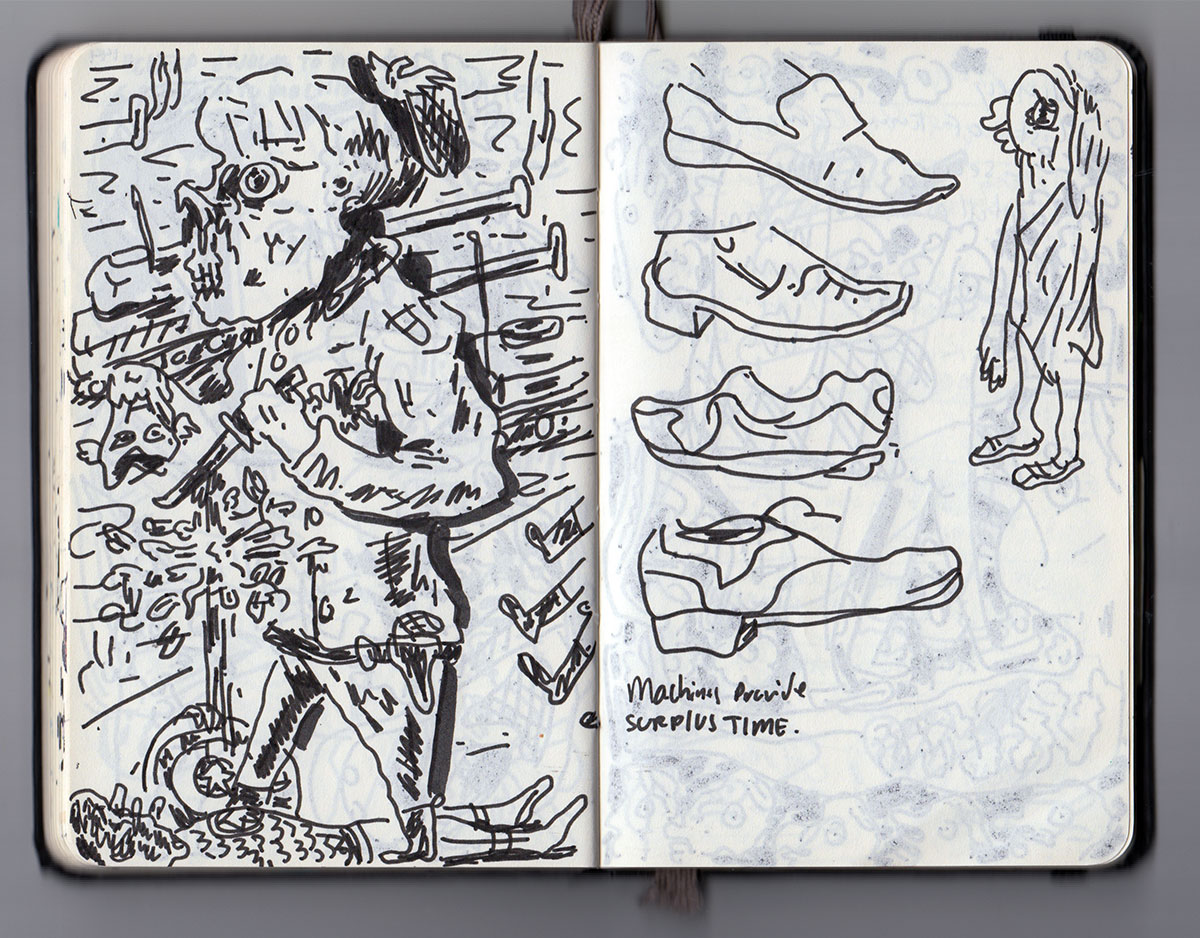 Machines Provide
SURPLUS TIME.